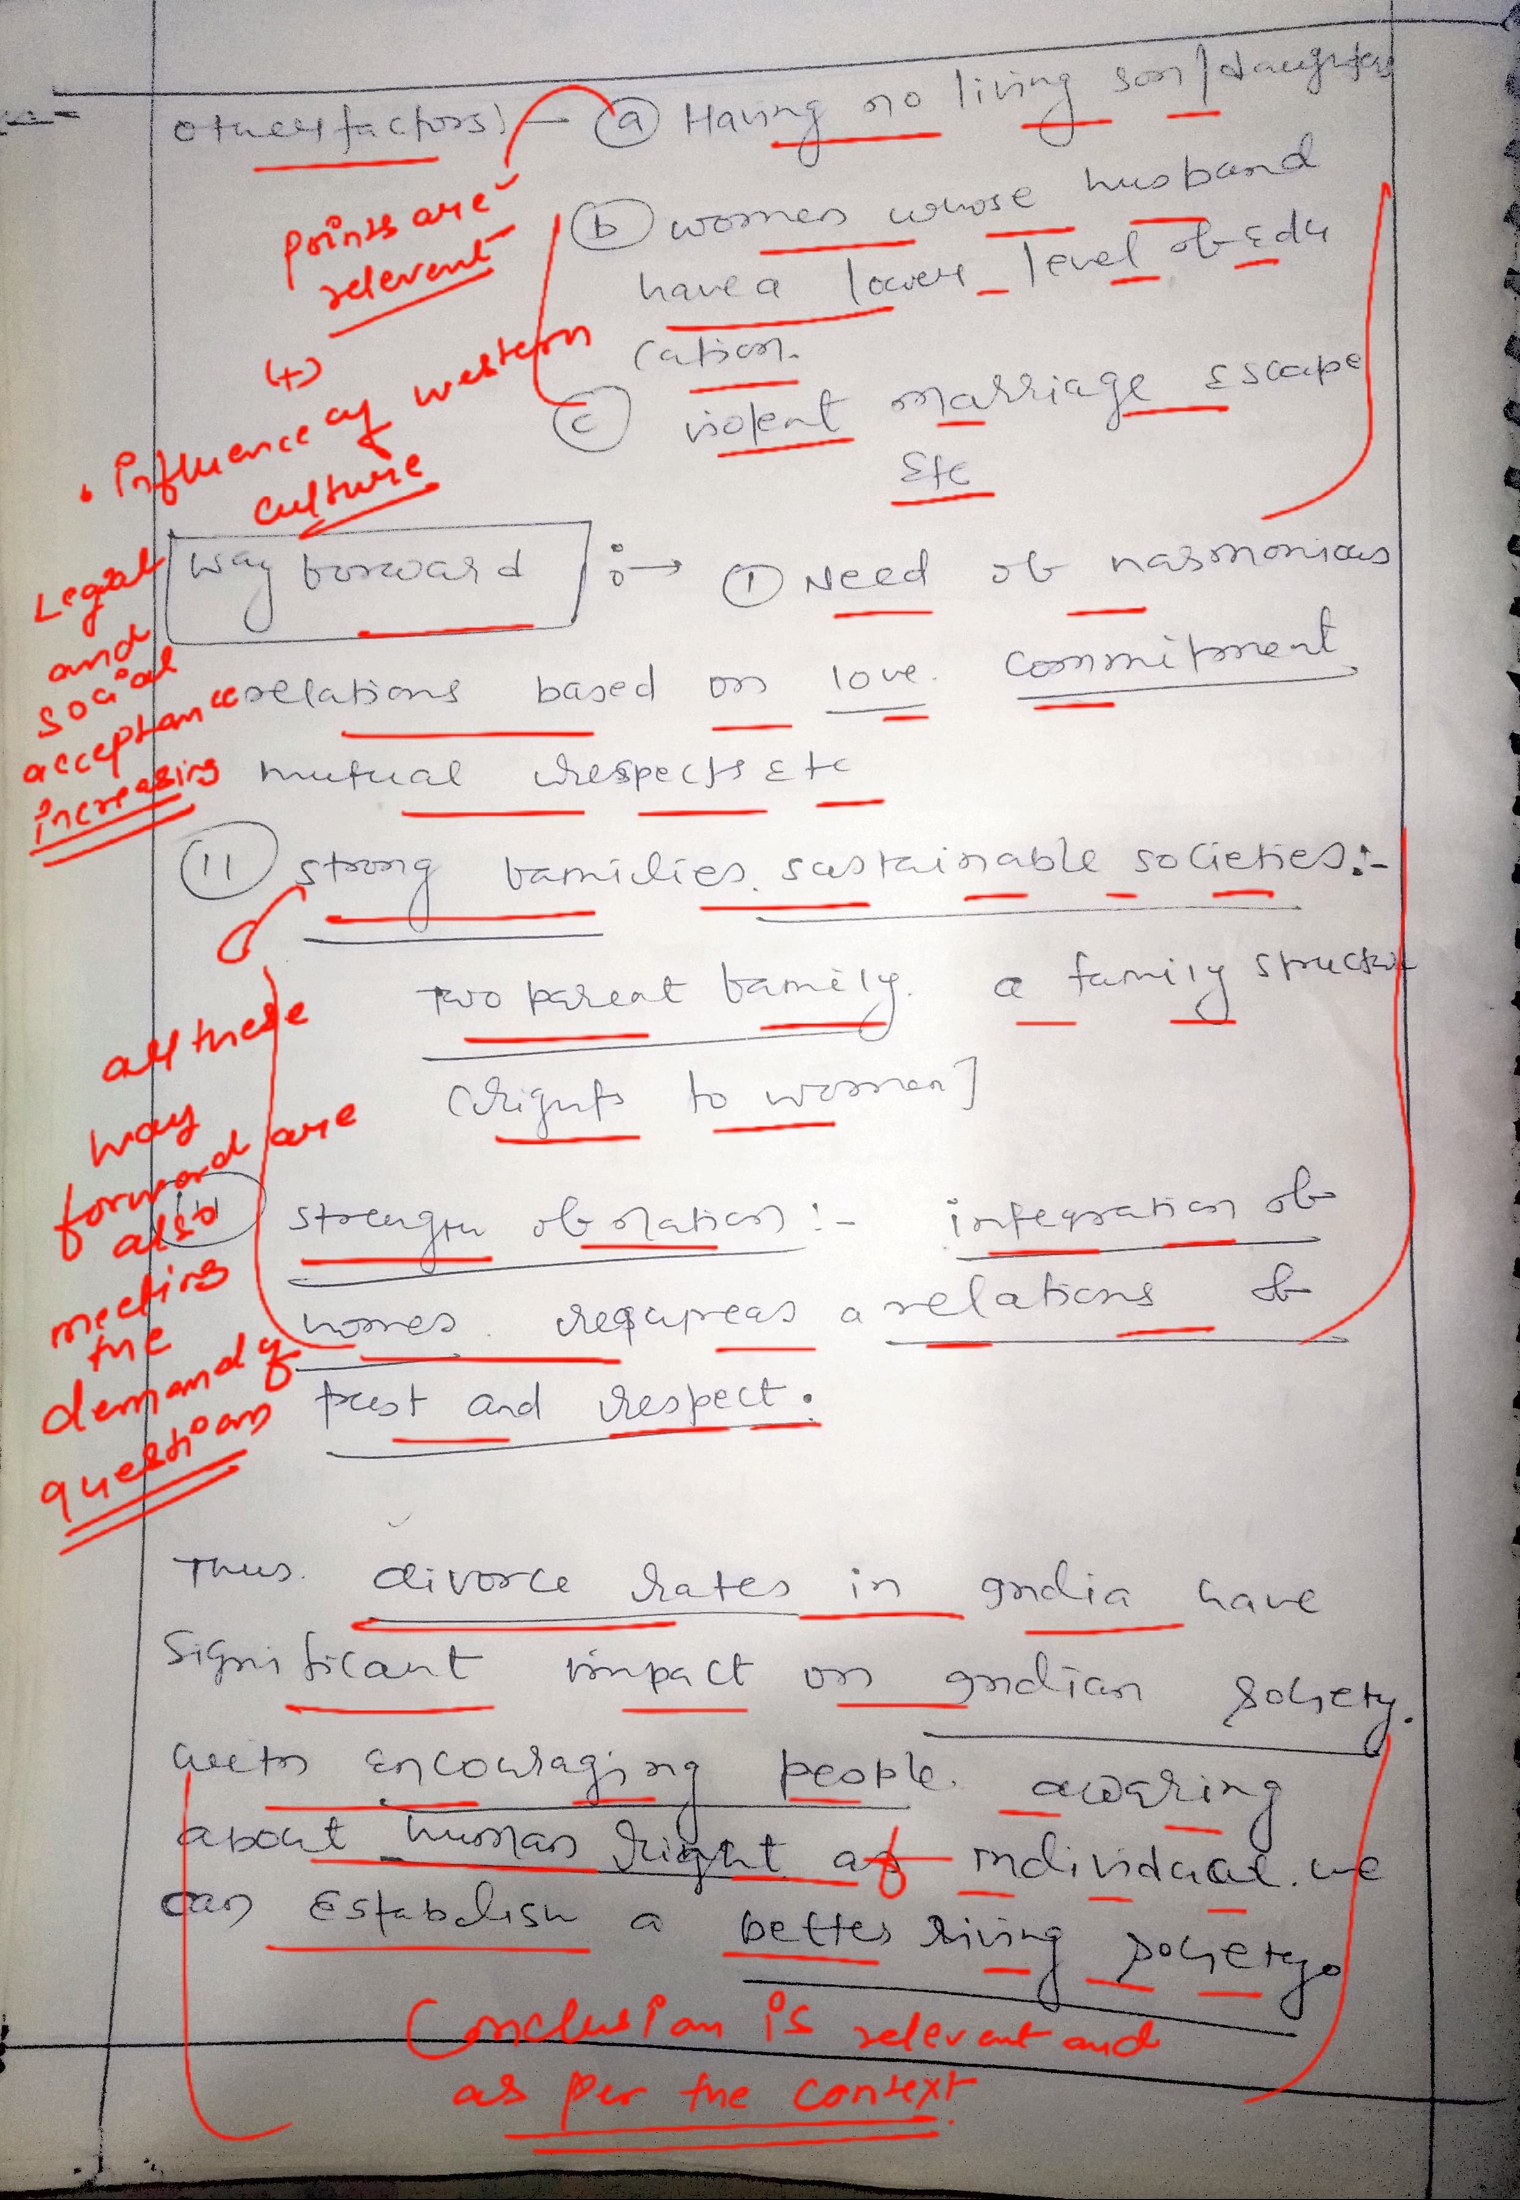 other factors) - (a) Having no living son/daughter
points are relevent
(b) women whose husband
have a lower level of Edu
cation.
(+)
• Influence of western
culture
(c) violent marriage Escape
Etc
Legal
and
social
acceptance
increasing
Way forward :→ (1) Need of harmonious
relations based on love. commitment
mutual respects Etc
(11) strong families. sustainable societies:-
Two parent family. a family structu
(rights to women]
all these
way
forward are
also
meeting
the
demand of
question
strength of nation :- integration of
homes. a relations of
trust and respect.
Thus. divorce rates in India have
significant impact on Indian society.
with encouraging people. awaring
about human right of individual. we
can Establish a better living society.
Conclusion is relevant and
as per the context.